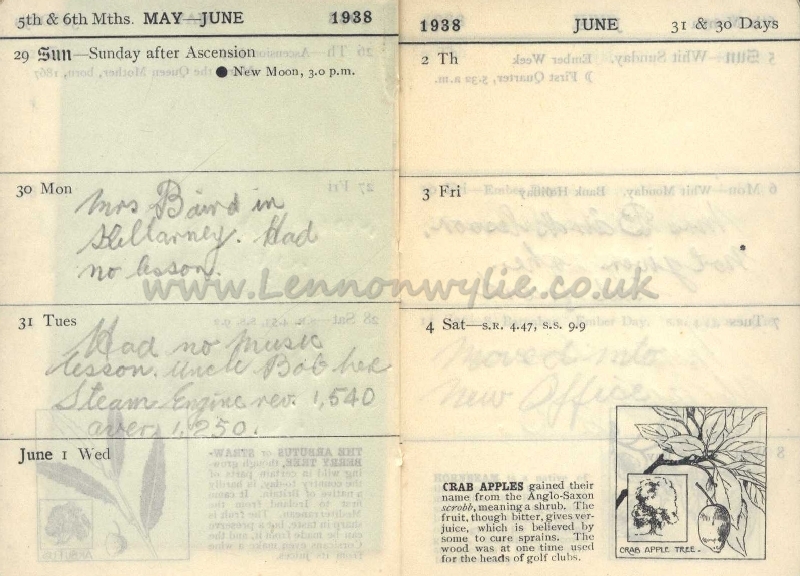 5th & 6th Mths. MAY—JUNE 1938
29 Sun—Sunday after Ascension
● New Moon, 3.0 p.m.
30 Mon
Mrs Baird in
Killarney. Had
no lesson.
31 Tues
Had no music
lesson. Uncle Bob
Steam Engine rev. 1,540
aver 1,250.
June 1 Wed
1938 JUNE 31 & 30 Days
2 Th
3 Fri
4 Sat—S.R. 4.47, S.S. 9.9
Moved into
New Office
CRAB APPLES gained their
name from the Anglo-Saxon
scrobb, meaning a shrub. The
fruit, though bitter, gives ver-
juice, which is believed by
some to cure sprains. The
wood was at one time used
for the heads of golf clubs.
CRAB APPLE TREE.
www.Lennonwylie.co.uk